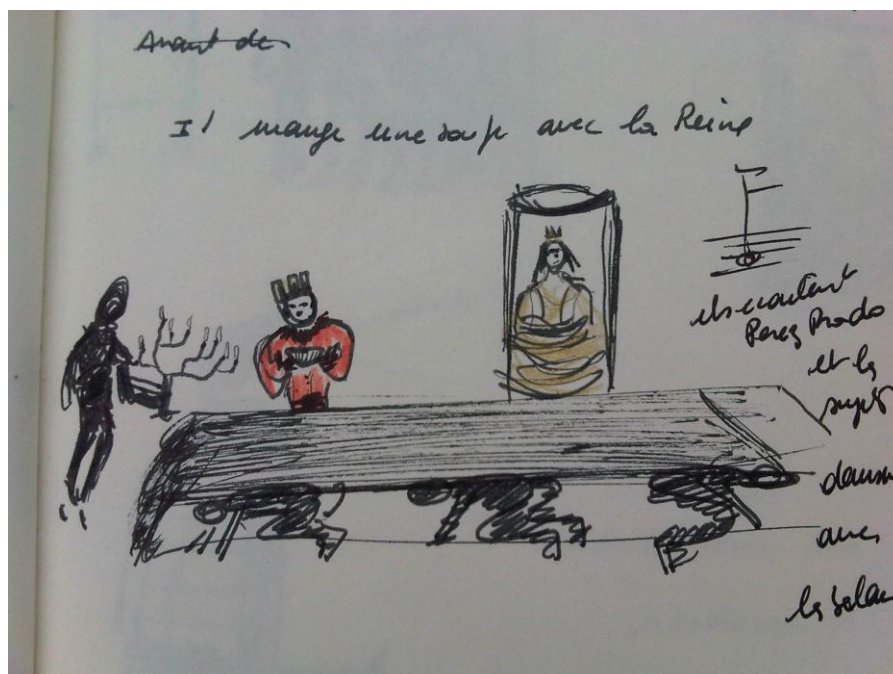 Avant de
Il mange une soupe avec la Reine
ils écoutent
Perez Prado
et les
sujets
dansent
avec